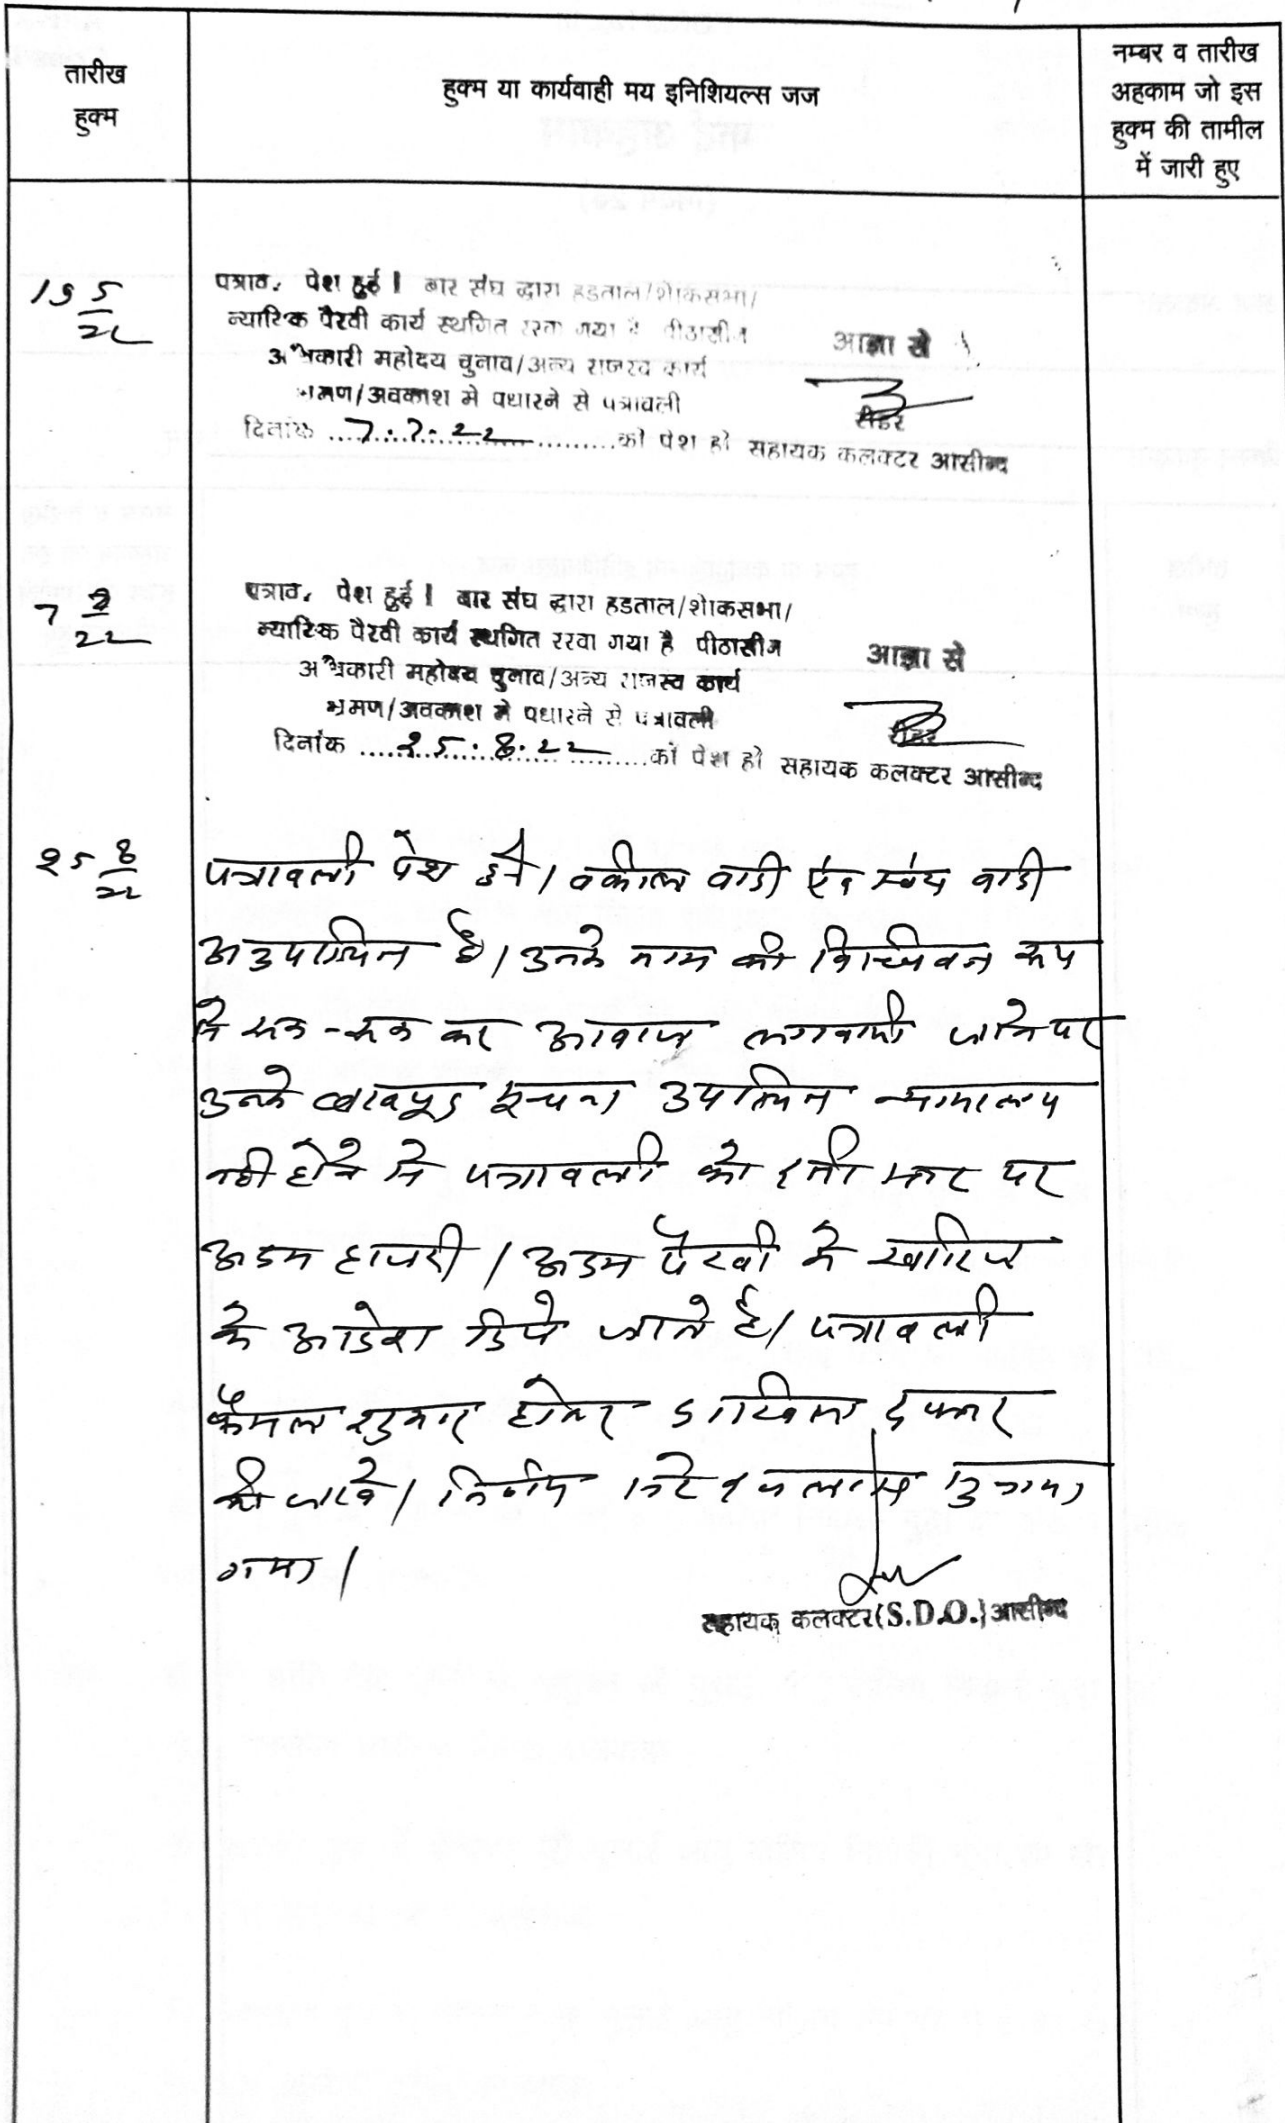 तारीख
हुक्म
हुक्म या कार्यवाही मय इनिशियल्स जज
नम्बर व तारीख
अहकाम जो इस
हुक्म की तामील
में जारी हुए
19 5/22
पत्राव. पेश हुई । बार संघ द्वारा हडताल/शोकसभा/
न्यायिक पैरवी कार्य स्थगित रखा गया है पीठासीन
अधिकारी महोदय चुनाव/अन्य राजस्व कार्य
भ्रमण/अवकाश मे पधारने से पत्रावली
दिनांक 7.7.22 को पेश हो
आज्ञा से
रीडर
सहायक कलक्टर आसीन्द
7 7/22
पत्राव. पेश हुई । बार संघ द्वारा हडताल/शोकसभा/
न्यायिक पैरवी कार्य स्थगित रखा गया है पीठासीन
अधिकारी महोदय चुनाव/अन्य राजस्व कार्य
भ्रमण/अवकाश मे पधारने से पत्रावली
दिनांक 25.8.22 को पेश हो
आज्ञा से
रीडर
सहायक कलक्टर आसीन्द
25 8/22
पत्रावली पेश हुई। वकील वादी एंव स्वंय वादी
अनुपस्थित है। उनके नाम की विधिवत रूप
से रूक-रूक कर आवाज लगवायी जाने पर
उनके बावजूद सूचना उपस्थित न्यायालय
नही होने से पत्रावली को इसी स्तर पर
अदम हाजरी / अदम पैरवी मे खारिज
के आदेश दिये जाते है। पत्रावली
फैसल शुमार होकर दाखिल दफ्तर
की जावे। निर्णय सुनाया
गया।
सहायक कलक्टर(S.D.O.)आसीन्द